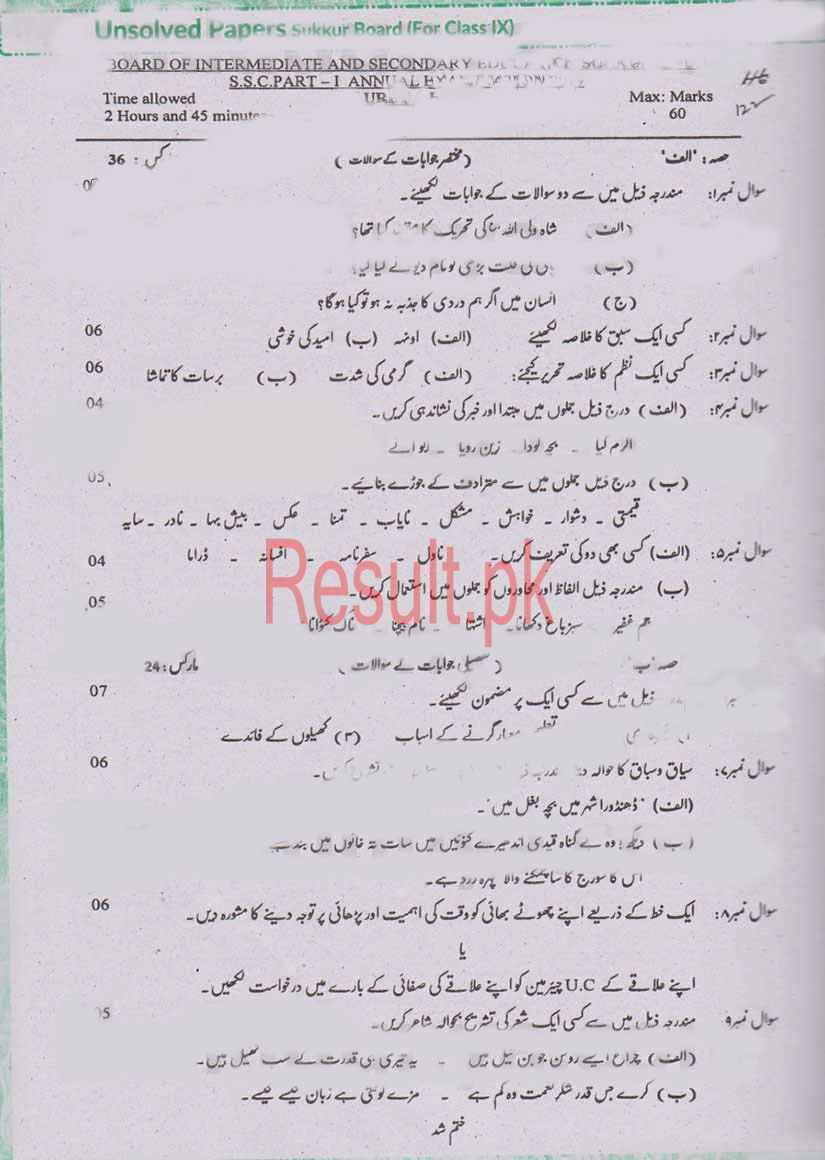 Unsolved Papers Sukkur Board (For Class IX)
BOARD OF INTERMEDIATE AND SECONDARY
S.S.C.PART – I ANNUAL
Time allowed
Max: Marks
2 Hours and 45 minutes
60
122
حصہ: "الف" (مختصر جوابات کے سوالات) 36
سوال نمبر۱: مندرجہ ذیل میں سے دو سوالات کے جوابات لکھیئے۔
(الف) شاہ ولی اللہ کی تحریک کا کیا تھا؟
(ب)
(ج) انسان میں اگر ہم دردی کا جذبہ نہ ہو تو کیا ہوگا؟
سوال نمبر۲: کسی ایک سبق کا خلاصہ لکھیئے (الف) اونہہ (ب) امید کی خوشی 06
سوال نمبر۳: کسی ایک نظم کا خلاصہ تحریر کیجئے: (الف) گرمی کی شدت (ب) برسات کا تماشا 06
سوال نمبر۴: (الف) درج ذیل جملوں میں مبتدا اور خبر کی نشاندہی کریں۔ 04
اکرم گیا ۔ بچہ ۔ زین رویا ۔
(ب) درج ذیل جملوں میں سے مترادف کے جوڑے بنائیے۔ 05
قیمتی ۔ دشوار ۔ خواہش ۔ مشکل ۔ نایاب ۔ تمنا ۔ عکس ۔ بیش بہا ۔ نادر ۔ سایہ
سوال نمبر۵: (الف) کسی بھی دو کی تعریف کریں۔ ناول ۔ سفرنامہ ۔ افسانہ ۔ ڈراما 04
(ب) مندرجہ ذیل الفاظ اور محاوروں کو جملوں میں استعمال کریں۔ 05
جم غفیر ۔ سبز باغ دکھانا ۔ اشتہا ۔ نام بیچنا ۔ ناک کٹوانا
حصہ "ب" جوابات کے سوالات) مارکس: 24
ذیل میں سے کسی ایک پر مضمون لکھیئے۔ 07
گرنے کے اسباب (۳) کھیلوں کے فائدے
سوال نمبر۷: سیاق و سباق کا حوالہ 06
(الف) "ڈھنڈورا شہر میں بچہ بغل میں"۔
(ب) دیکھ! وہ بے گناہ قیدی اندھیرے کنوئیں میں سات تہ خانوں میں بند ہے
اس کا سورج کا سا چمکنے والا چہرہ زرد ہے۔
سوال نمبر۸: ایک خط کے ذریعے اپنے چھوٹے بھائی کو وقت کی اہمیت اور پڑھائی پر توجہ دینے کا مشورہ دیں۔ 06
یا
اپنے علاقے کے U.C چیئرمین کو اپنے علاقے کی صفائی کے بارے میں درخواست لکھیں۔
سوال نمبر۹ مندرجہ ذیل میں سے کسی ایک شعر کی تشریح بحوالہ شاعر کریں۔ 05
(الف) چراغ ایسے روشن جو بن تیل ہیں ۔ یہ تیری ہی قدرت کے سب کھیل ہیں۔
(ب) کرے جس قدر شکر نعمت وہ کم ہے ۔ مزے لوٹتی ہے زبان کیسے کیسے۔
ختم شد
Result.pk